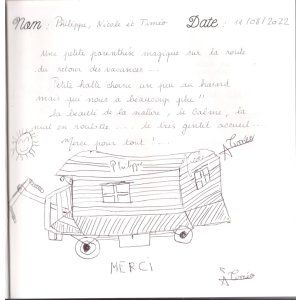 Nom : Philippe, Nicole et Timéo Date : 11/08/2022
Une petite parenthèse magique sur la route
du retour des vacances...
Petite halte choisie un peu au hasard
mais qui nous a beaucoup plu !!
la beauté de la nature, le calme, la
nuit en roulotte..... le très gentil accueil...
Merci pour tout !...
Philippe
Timéo
MERCI
Timéo